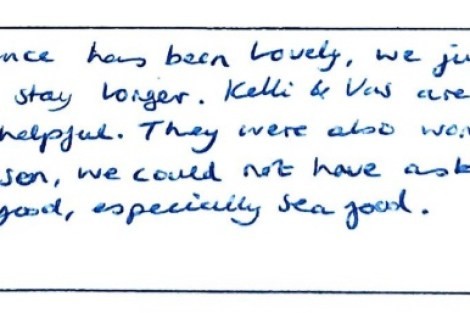 nce has been lovely, we ju
stay longer. Kelli & Vas are
helpful. They were also wo
son, we could not have ask
good, especially sea good.